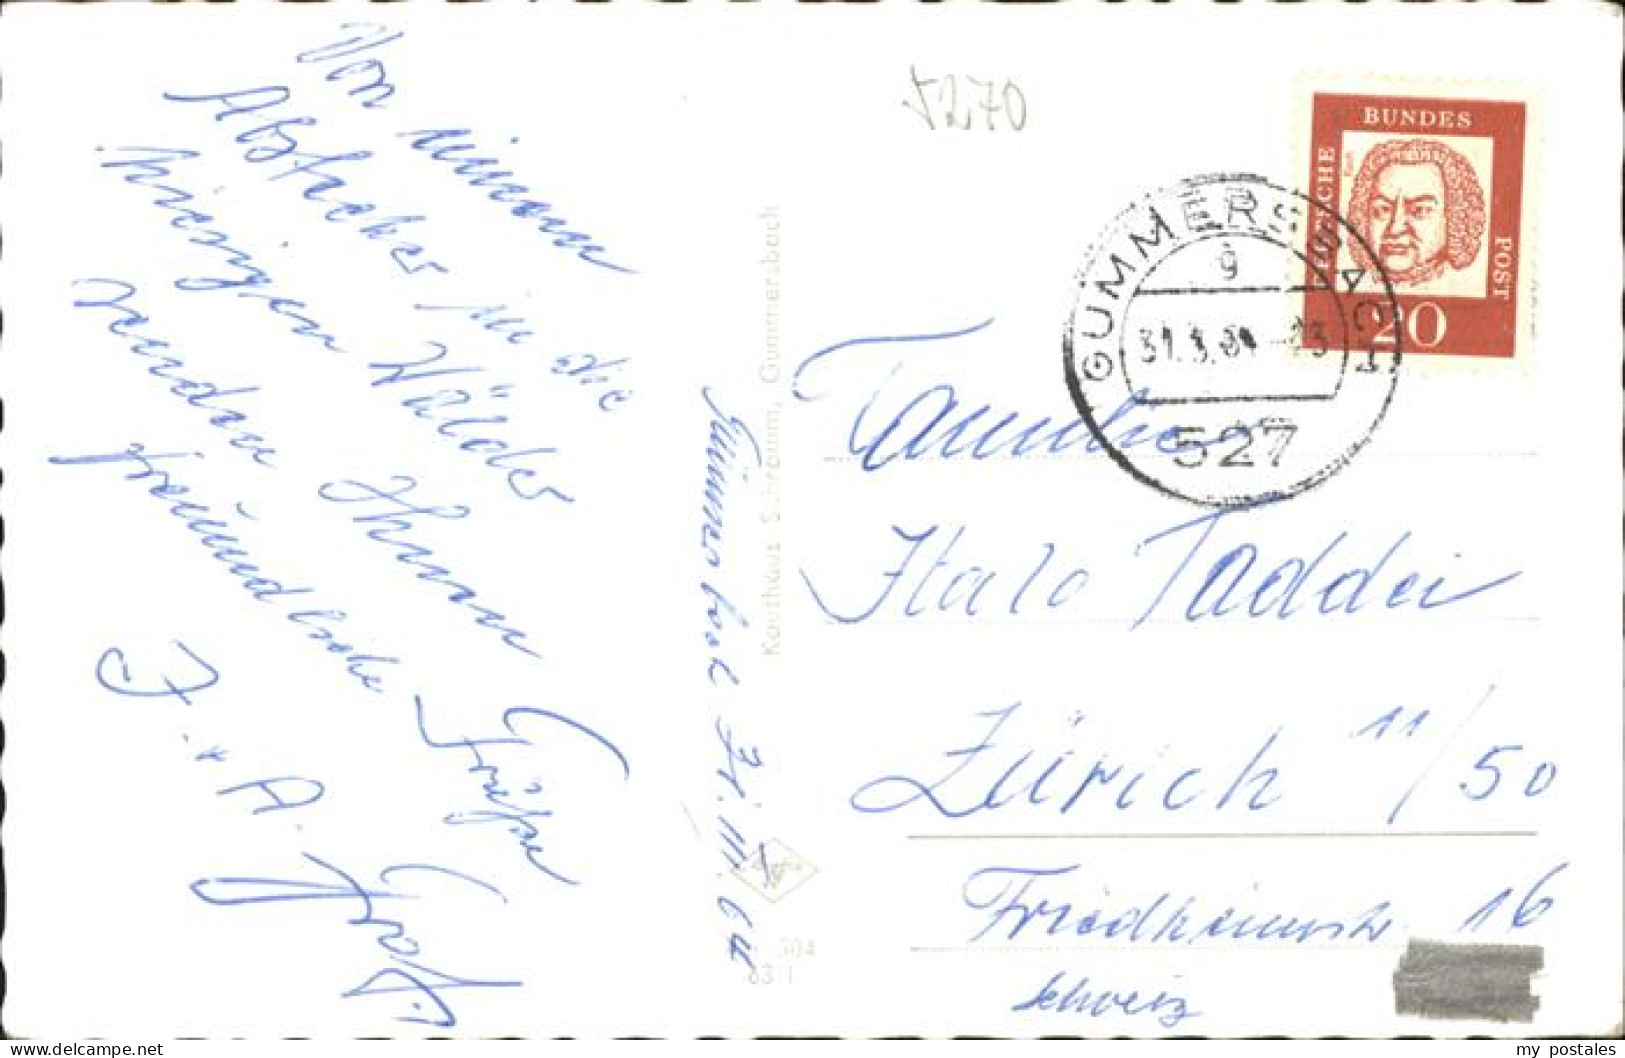 Von einem
Abstecher in die
hiesigen Wälder
senden Ihnen
freundliche Grüße
F. + A.
Gummersbach 31.III.64
Kaufhaus Schramm, Gummersbach
504
63
5270
BUNDES
POST
20
GUMMERSBACH
g
31.3.64-13
527
Familie
Italo Taddei
Zürich 11/50
Friedheimstr. 16
Schweiz
my postales